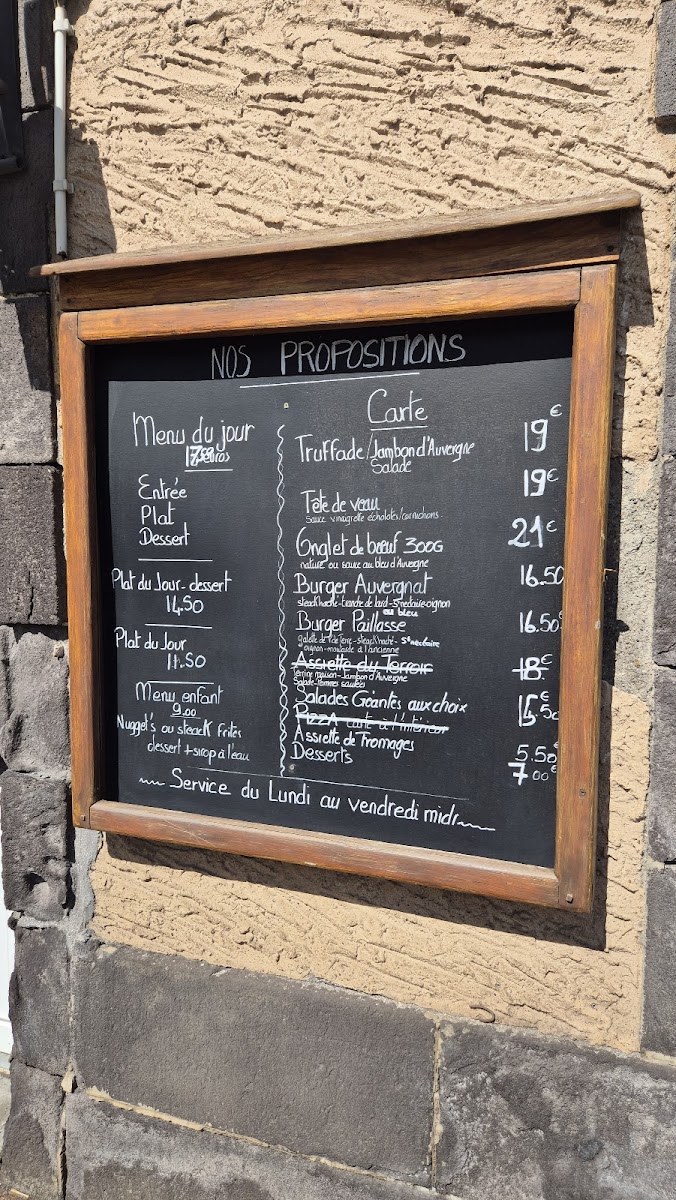 NOS PROPOSITIONS
Menu du jour
Entrée
Plat
Dessert
Plat du Jour - dessert
14.50
Plat du Jour
11.50
Menu enfant
9.00
Nugget's ou steack frites
dessert + sirop à l'eau
Carte
Truffade / Jambon d'Auvergne 19€
Salade
Tête de veau 19€
Sauce vinaigrette échalotes/cornichons
Onglet de bœuf 300G 21€
nature ou sauce au bleu d'Auvergne
Burger Auvergnat 16.50
steack haché - tranche de lard - St nectaire - oignon
ou bleu
Burger Paillasse 16.50€
galette de P de Terre - steack haché - St nectaire
oignon - moutarde à l'ancienne
Assiette du Terroir 18€
Terrine maison - Jambon d'Auvergne
Salade - Pommes sautées
Salades Géantes aux choix
PIZZA carte à l'intérieur
Assiette de Fromages 5.50
Desserts 7.00€
Service du Lundi au vendredi midi